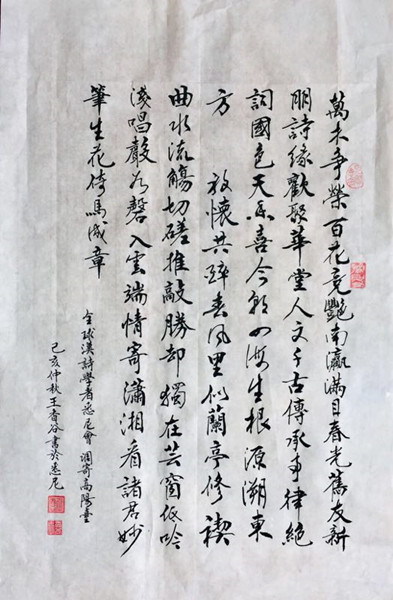 萬木争榮百花竞艷南瀛滿目春光舊友新
朋詩緣歡聚華堂人文千古傳承事律絕
詞國色天香喜今朝四海生根源溯東
方　放懷共醉春風里似蘭亭修禊
曲水流觴切磋推敲勝却獨在芸窗低吟
淺唱聲如磬入雲端情寄瀟湘看諸君妙
筆生花倚馬成章
全球漢詩學者悉尼會 調寄高陽臺
己亥仲秋王香谷書於悉尼